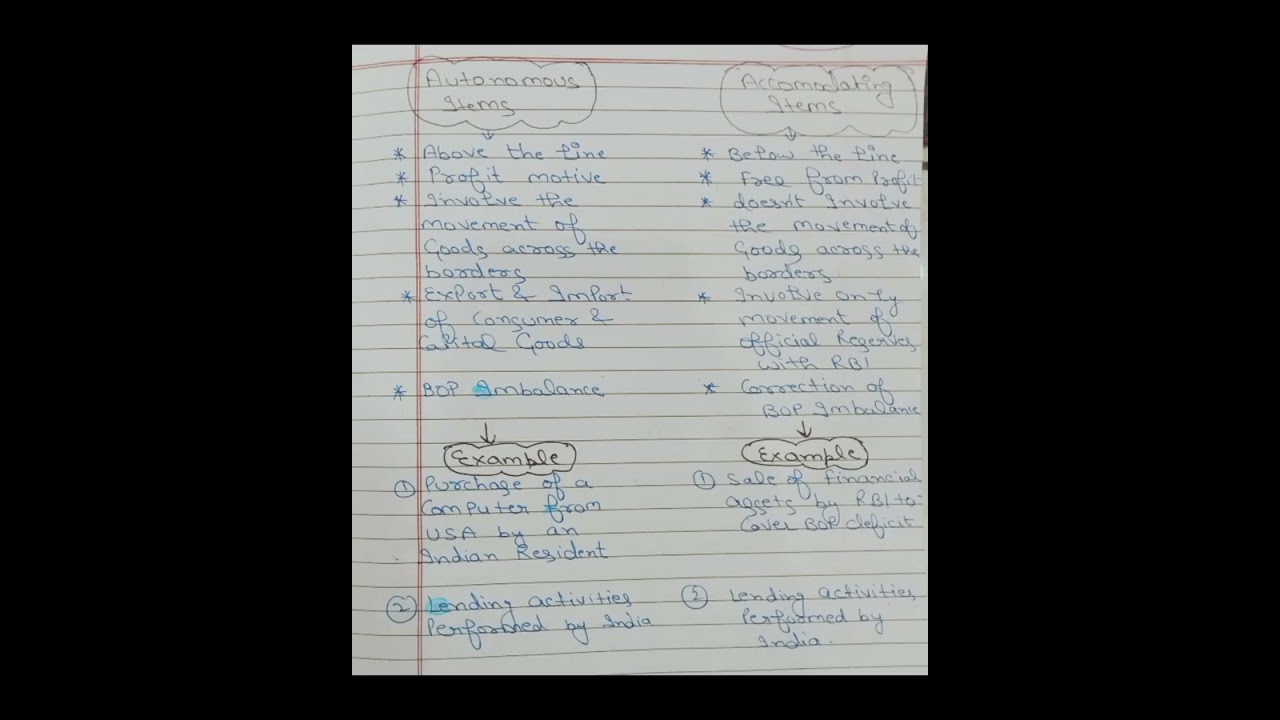 Autonomous
Items
* Above the line
* Profit motive
* Involve the
movement of
Goods across the
borders
* Export & Import
of Consumer &
Capital Goods
* BOP Imbalance
Example
① Purchase of a
Computer from
USA by an
Indian Resident
② Lending activities
Performed by India
Accomodating
Items
* Below the line
* Free from Profit
* doesn't Involve
the movement of
Goods across the
borders
* Involve only
movement of
official Reserves
with RBI
* Correction of
BOP Imbalance
Example
① Sale of financial
assets by RBI to
Cover BOP deficit
② Lending activities
Performed by
India.